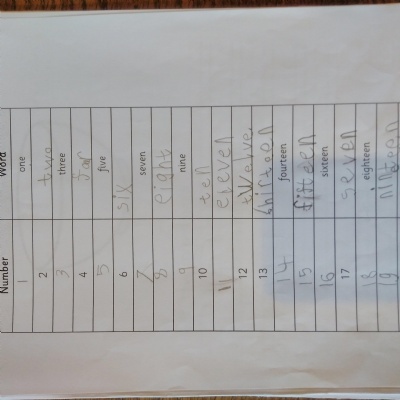 Number Word
1 one
2 two
3 three
4 for
5 five
6 six
7 seven
8 eight
9 nine
10 ten
11 eleven
12 twelve
13 thirteen
14 fourteen
15 fifteen
16 sixteen
17 seven
18 eighteen
19 ninteen